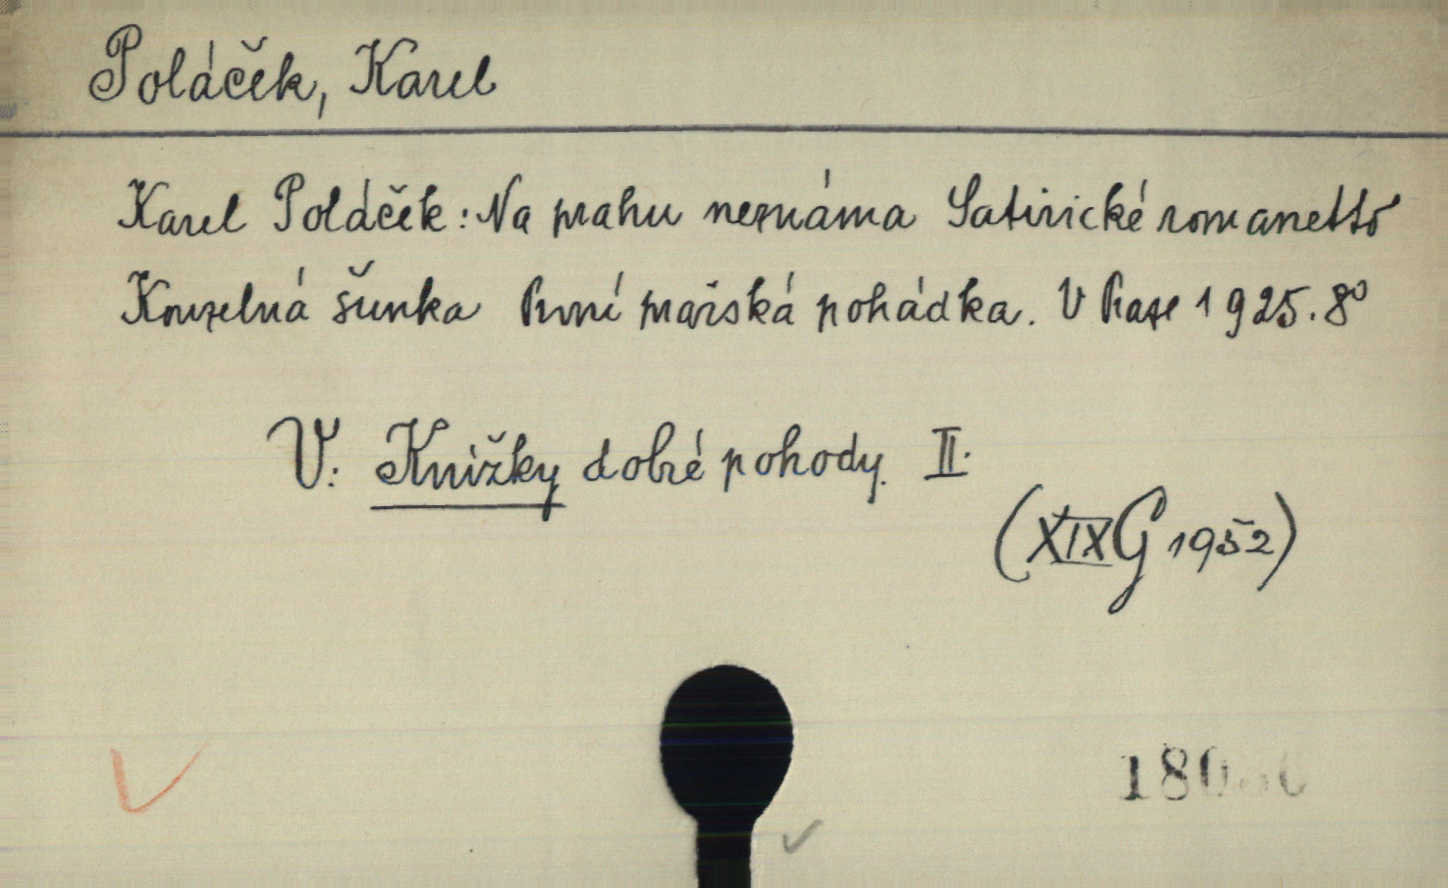 Poláček, Karel
Karel Poláček: Na prahu neznáma Satirické romanetto
Kouzelná šunka První pražská pohádka. V Praze 1925. 8°
V: Knižky dobré pohody. II.
(XIX G 1952)